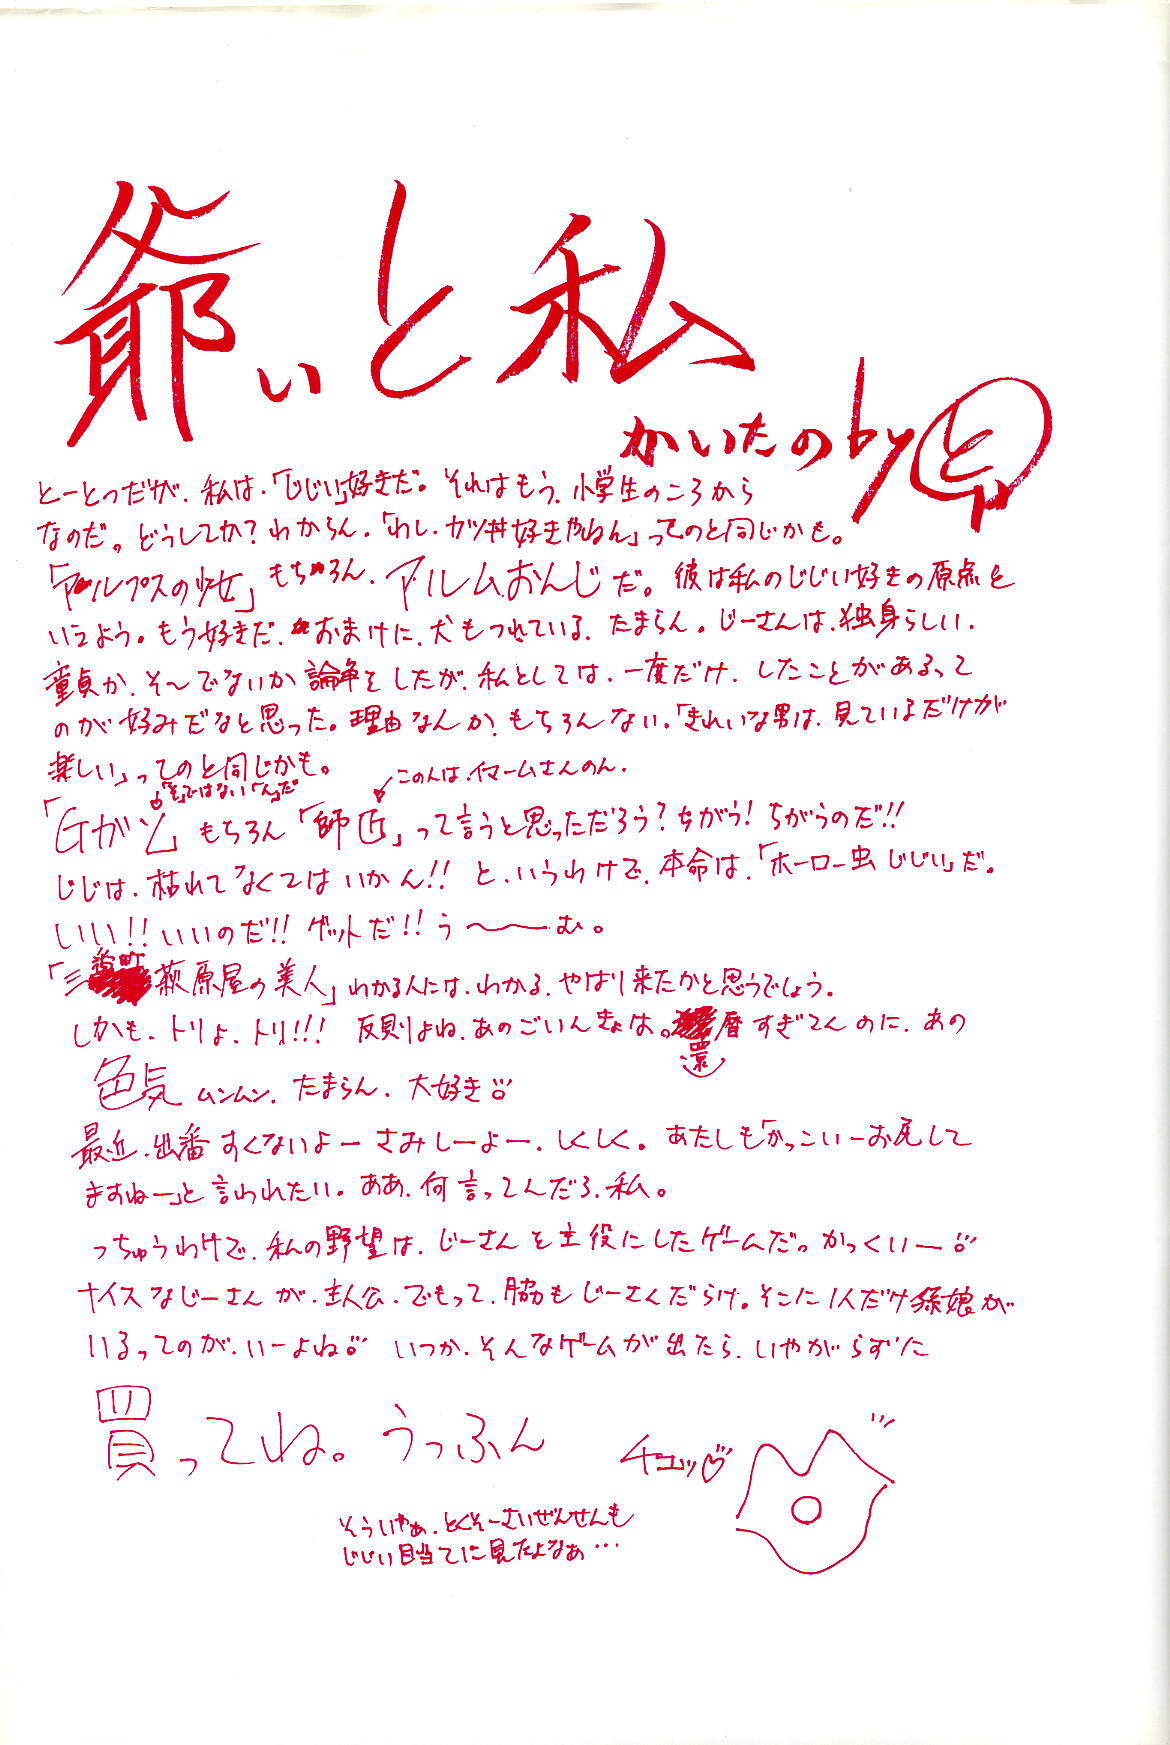 爺ぃと私
かいたの by と
とーとつだが、私は、「じじい」好きだ。それはもう、小学生のころから
なのだ。どうしてか？わからん。「わし、カツ丼好きやねん」ってのと同じかも。
「アルプスの少女」もちろん、アルムおんじだ。彼は私のじじい好きの原点と
いえよう。もう好きだ、おまけに、犬もつれている、たまらん。じーさんは、独身らしい、
童貞か、そ〜でないか論争をしたが、私としては、一度だけ、したことがあるって
のが好みだなと思った。理由なんか、もちろんない、「きれいな男は、見ているだけが
楽しい」ってのと同じかも。
「そ」ではない「ん」だ
このんは、イマームさんのん、
「Gガン」もちろん「師匠」って言うと思っただろう？ちがう！ちがうのだ!!
じじは、枯れてなくてはいかん!! と、いうわけで、本命は、「ホーロー虫じじい」だ。
いい!! いいのだ!! ゲットだ!! う〜〜む。
「三番町萩原屋の美人」わかる人には、わかる、やはり来たかと思うでしょう。
しかも、トリよ、トリ!!! 反則よね、あのごいんきょは。還暦すぎてんのに、あの
色気ムンムン、たまらん、大好き♡
最近、出番すくないよーさみしーよー、しくしく。あたしも「かっこいーお尻して
ますねー」と言われたい。ああ、何言ってんだろ、私。
っちゅうわけで、私の野望は、じーさんを主役にしたゲームだ。かっくいー♡
ナイスなじーさんが、主人公、でもって、脇もじーさんだらけ。そこに1人だけ孫娘が
いるってのが、いーよね♡ いつか、そんなゲームが出たら、いやがらずに
買ってね。うっふん
チュッ♡
そういやぁ、とくそーさいぜんせんも
じじい目当てに見たよなぁ…